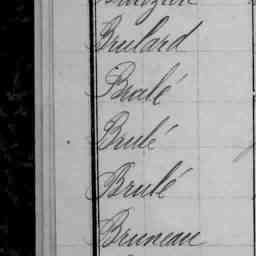 Brulard
Brulé
Brulé
Brulé
Bruneau